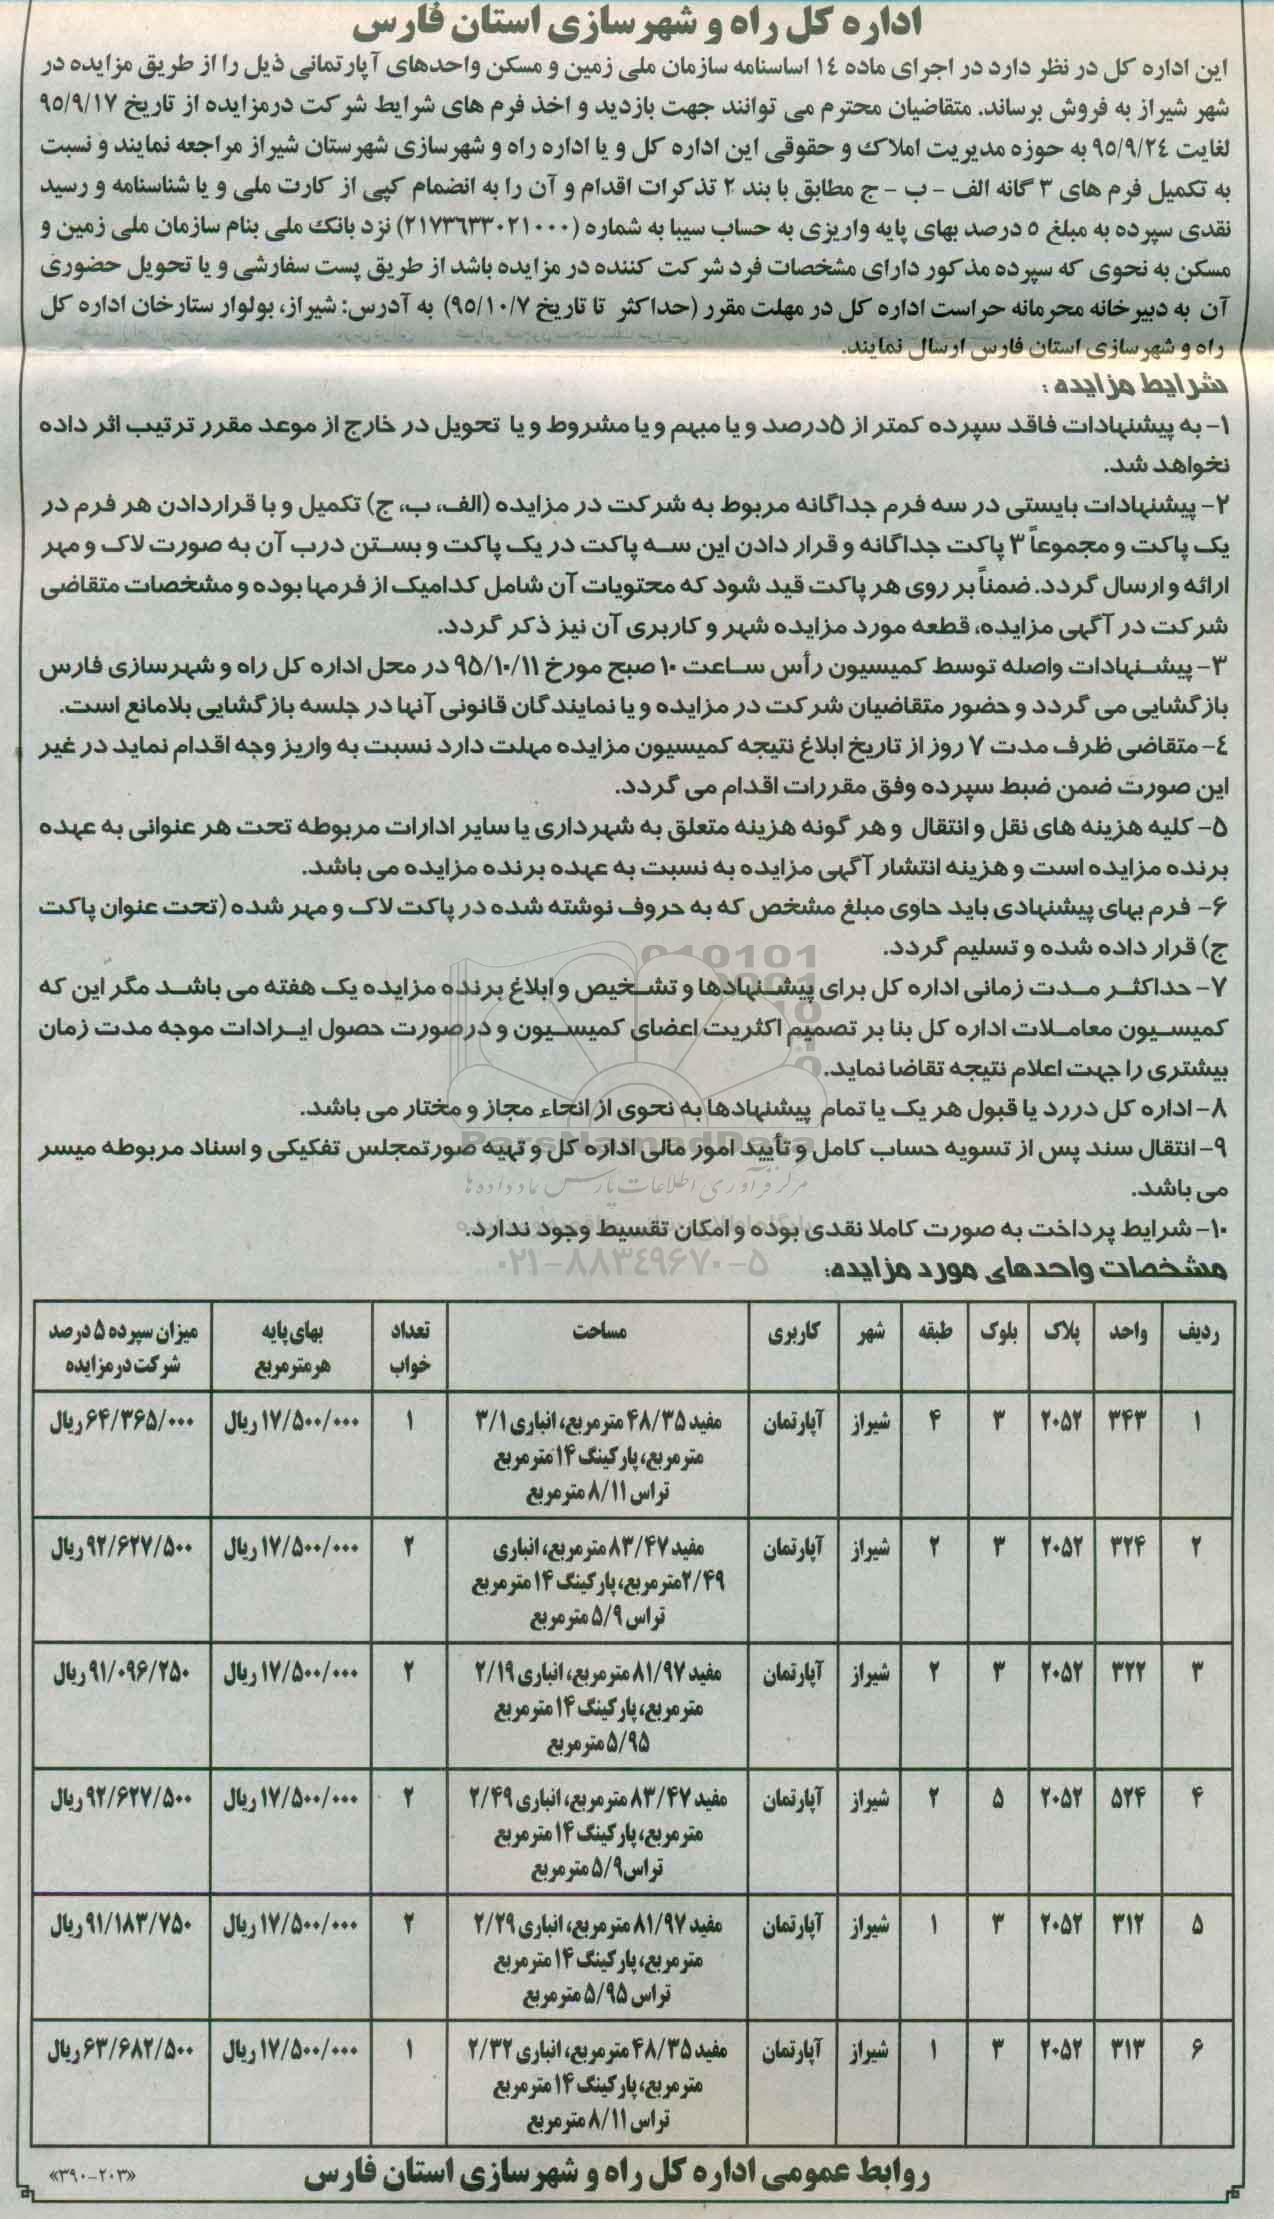 اداره کل راه و شهرسازی استان فارس
این اداره کل در نظر دارد در اجرای ماده ١٤ اساسنامه سازمان ملی زمین و مسکن واحدهای آپارتمانی ذیل را از طریق مزایده در
شهر شیراز به فروش برساند. متقاضیان محترم می توانند جهت بازدید و اخذ فرم های شرایط شرکت درمزایده از تاریخ ٩٥/٩/١٧
لغایت ٩٥/٩/٢٤ به حوزه مدیریت املاک و حقوقی این اداره کل و یا اداره راه و شهرسازی شهرستان شیراز مراجعه نمایند و نسبت
به تکمیل فرم های ٣ گانه الف - ب - ج مطابق با بند ٢ تذکرات اقدام و آن را به انضمام کپی از کارت ملی و یا شناسنامه و رسید
نقدی سپرده به مبلغ ٥ درصد بهای پایه واریزی به حساب سیبا به شماره (٢١٧٣٦٣٣٠٢١٠٠٠) نزد بانک ملی بنام سازمان ملی زمین و
مسکن به نحوی که سپرده مذکور دارای مشخصات فرد شرکت کننده در مزایده باشد از طریق پست سفارشی و یا تحویل حضوری
آن به دبیرخانه محرمانه حراست اداره کل در مهلت مقرر (حداکثر تا تاریخ ٩٥/١٠/٧) به آدرس: شیراز، بولوار ستارخان اداره کل
راه و شهرسازی استان فارس ارسال نمایند.
شرایط مزایده :
۱- به پیشنهادات فاقد سپرده کمتر از ۵درصد و یا مبهم و یا مشروط و یا تحویل در خارج از موعد مقرر ترتیب اثر داده
نخواهد شد.
۲- پیشنهادات بایستی در سه فرم جداگانه مربوط به شرکت در مزایده (الف، ب، ج) تکمیل و با قراردادن هر فرم در
یک پاکت و مجموعاً ۳ پاکت جداگانه و قرار دادن این سه پاکت در یک پاکت و بستن درب آن به صورت لاک و مهر
ارائه و ارسال گردد. ضمناً بر روی هر پاکت قید شود که محتویات آن شامل کدامیک از فرمها بوده و مشخصات متقاضی
شرکت در آگهی مزایده، قطعه مورد مزایده شهر و کاربری آن نیز ذکر گردد.
۳- پیشنهادات واصله توسط کمیسیون رأس ساعت ۱۰ صبح مورخ ۹۵/۱۰/۱۱ در محل اداره کل راه و شهرسازی فارس
بازگشایی می گردد و حضور متقاضیان شرکت در مزایده و یا نمایندگان قانونی آنها در جلسه بازگشایی بلامانع است.
٤- متقاضی ظرف مدت ۷ روز از تاریخ ابلاغ نتیجه کمیسیون مزایده مهلت دارد نسبت به واریز وجه اقدام نماید در غیر
این صورت ضمن ضبط سپرده وفق مقررات اقدام می گردد.
۵- کلیه هزینه های نقل و انتقال و هر گونه هزینه متعلق به شهرداری یا سایر ادارات مربوطه تحت هر عنوانی به عهده
برنده مزایده است و هزینه انتشار آگهی مزایده به نسبت به عهده برنده مزایده می باشد.
۶- فرم بهای پیشنهادی باید حاوی مبلغ مشخص که به حروف نوشته شده در پاکت لاک و مهر شده (تحت عنوان پاکت
ج) قرار داده شده و تسلیم گردد.
۷- حداکثر مدت زمانی اداره کل برای پیشنهادها و تشخیص و ابلاغ برنده مزایده یک هفته می باشد مگر این که
کمیسیون معاملات اداره کل بنا بر تصمیم اکثریت اعضای کمیسیون و درصورت حصول ایرادات موجه مدت زمان
بیشتری را جهت اعلام نتیجه تقاضا نماید.
۸- اداره کل دررد یا قبول هر یک یا تمام پیشنهادها به نحوی از انحاء مجاز و مختار می باشد.
ParsNamadData
۹- انتقال سند پس از تسویه حساب کامل و تأیید امور مالی اداره کل و تهیه صورتمجلس تفکیکی و اسناد مربوطه میسر
می باشد.
مرکز فرآوری اطلاعات پارس نماد داده ها
۱۰- شرایط پرداخت به صورت کاملا نقدی بوده و امکان تقسیط وجود ندارد.
۰۲۱-۸۸۳۴۹۶۷۰-۵
مشخصات واحدهای مورد مزایده:
ردیف واحد پلاک بلوک طبقه شهر کاربری مساحت تعداد خواب بهای پایه هرمترمربع میزان سپرده ۵ درصد شرکت درمزایده
۱ ۳۴۳ ۲۰۵۲ ۳ ۴ شیراز آپارتمان مفید ۴۸/۳۵ مترمربع، انباری ۳/۱ ۱ ۱۷/۵۰۰/۰۰۰ ریال ۶۴/۳۶۵/۰۰۰ ریال
مترمربع، پارکینگ ۱۴ مترمربع
تراس ۸/۱۱ مترمربع
۲ ۳۲۴ ۲۰۵۲ ۳ ۲ شیراز آپارتمان مفید ۸۳/۴۷ مترمربع، انباری ۲ ۱۷/۵۰۰/۰۰۰ ریال ۹۲/۶۲۷/۵۰۰ ریال
۲/۴۹مترمربع، پارکینگ ۱۴ مترمربع
تراس ۵/۹ مترمربع
۳ ۳۲۲ ۲۰۵۲ ۳ ۲ شیراز آپارتمان مفید ۸۱/۹۷ مترمربع، انباری ۲/۱۹ ۲ ۱۷/۵۰۰/۰۰۰ ریال ۹۱/۰۹۶/۲۵۰ ریال
مترمربع، پارکینگ ۱۴ مترمربع
۵/۹۵ مترمربع
۴ ۵۲۴ ۲۰۵۲ ۵ ۲ شیراز آپارتمان مفید ۸۳/۴۷ مترمربع، انباری ۲/۴۹ ۲ ۱۷/۵۰۰/۰۰۰ ریال ۹۲/۶۲۷/۵۰۰ ریال
مترمربع، پارکینگ ۱۴ مترمربع
تراس۵/۹ مترمربع
۵ ۳۱۲ ۲۰۵۲ ۳ ۱ شیراز آپارتمان مفید ۸۱/۹۷ مترمربع، انباری ۲/۲۹ ۲ ۱۷/۵۰۰/۰۰۰ ریال ۹۱/۱۸۳/۷۵۰ ریال
مترمربع، پارکینگ ۱۴ مترمربع
تراس ۵/۹۵ مترمربع
۶ ۳۱۳ ۲۰۵۲ ۳ ۱ شیراز آپارتمان مفید ۴۸/۳۵ مترمربع، انباری ۲/۳۲ ۱ ۱۷/۵۰۰/۰۰۰ ریال ۶۳/۶۸۲/۵۰۰ ریال
مترمربع، پارکینگ ۱۴ مترمربع
تراس ۸/۱۱ مترمربع
روابط عمومی اداره کل راه و شهرسازی استان فارس
«۳۹۰-۲۰۳»